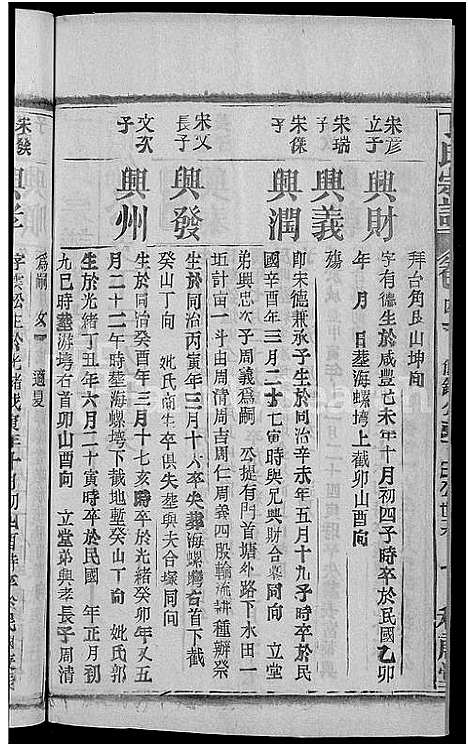 拜台角艮山坤向
朱彥
立子
興財
字有德生於咸豐己未年十月初四子時卒於民國乙卯
年 月 日塟海螺塆上截卯山酉向
朱瑞
子
興義
殤
朱傑
子
興潤
即朱德兼承子生於同治辛未年五月十九子時卒於民
國辛酉年三月二十七寅時與兄興財合塟同向 立堂
弟興忠次子周義爲嗣 公提有門首塘外路下水田一
坵計亩一斗由周清周吉周仁周義四股輪流耕種辦祭
朱文
長子
興發
生於同治丙寅年三月十六卒失葬海螺塆右首下截
癸山丁向 妣氏 生卒俱失塟與夫合塚同向
文次
子
興州
生於同治癸酉年三月十七亥時卒於光緒癸卯年又五
月二十二午時塟海螺塆下截地塹癸山丁向 妣氏郭
生於光緒丁丑年六月二十寅時卒於民國 年正月初
九巳時塟游塆右首卯山酉向 立堂弟興孝長子周清
爲嗣 女一 適夏
朱發
子
興孝